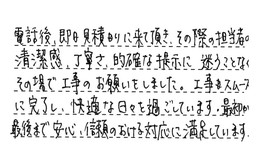 電話後、即日見積りに来て頂き、その際の担当者の
清潔感、丁寧さ、的確な提示に、迷うことなく
その場で工事のお願いをしました。工事もスムーズ
に完了し、快適な日々を過ごしています。最初から
最後まで安心、信頼のおける対応に満足しています。